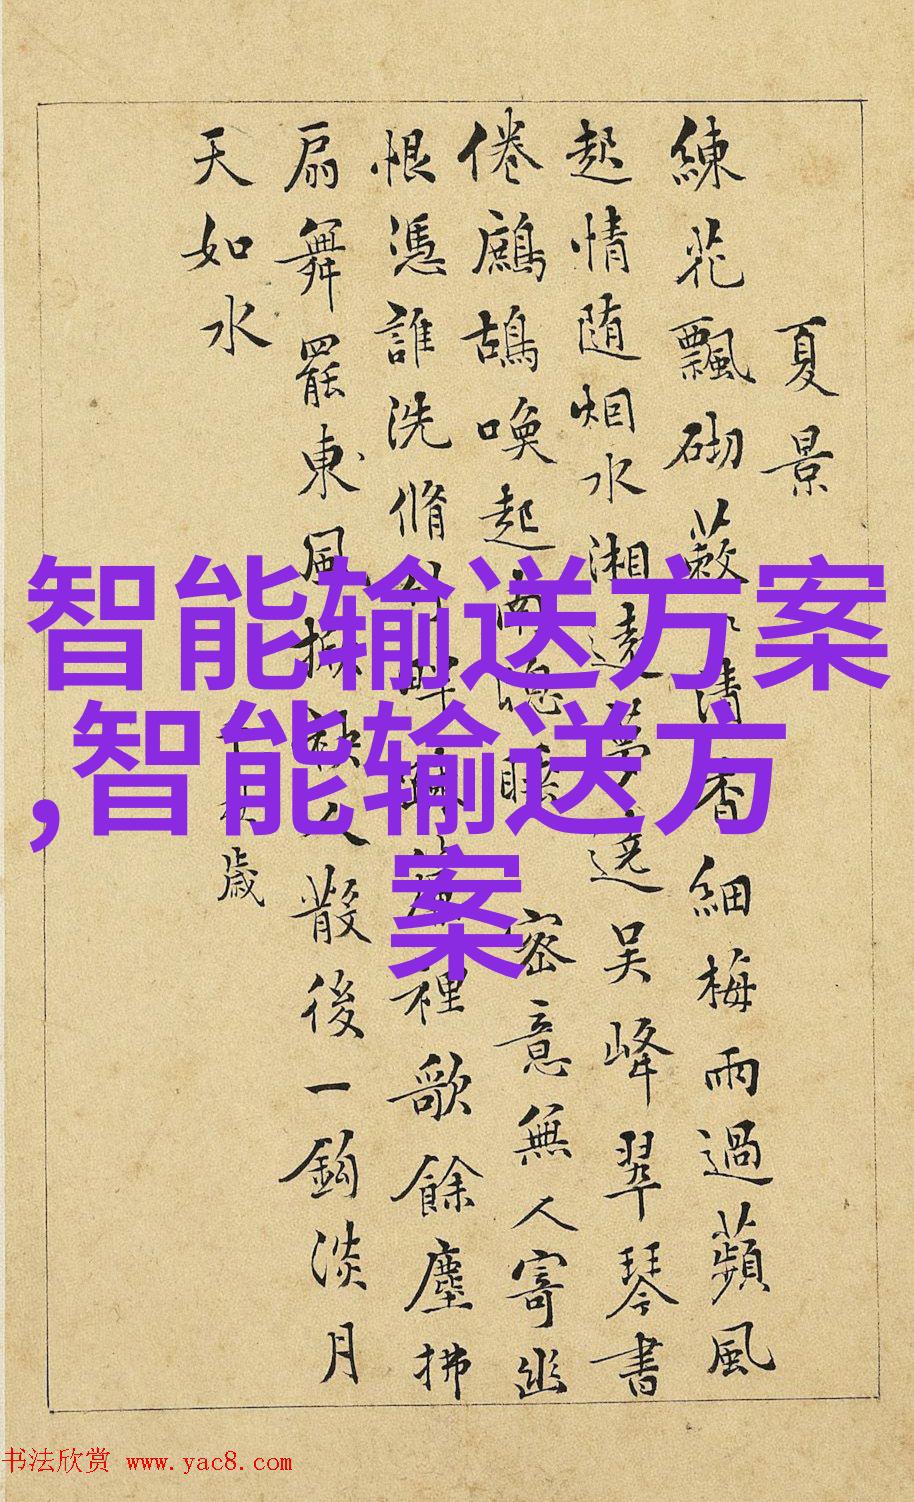 夏景
練花飄砌蔌清香細梅雨過蘋風
起情随烟水湘遠夢遶吳峰翠琴書
倦鷓鴣喚起睡密意無人寄幽
恨憑誰洗脩畔裡歌餘塵拂
扇舞罷東風袂人散後一鈎淡月
天如水
歲
智能输送方案
,智能输送方
案
书法欣赏 www.yac8.com